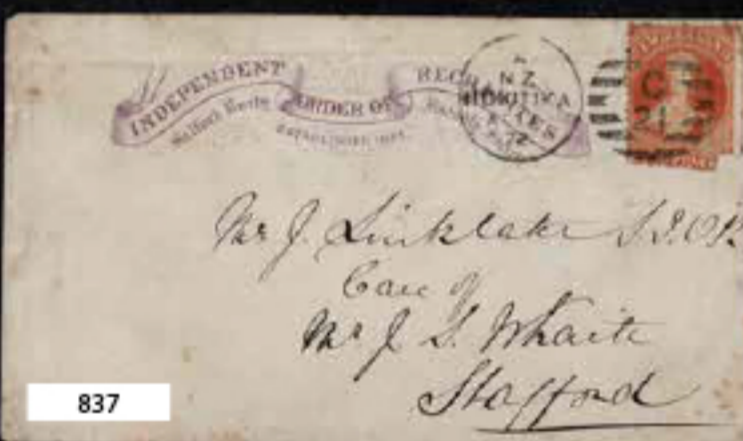 INDEPENDENT ORDER OF RECHABITES
Salford Unity
ESTABLISHED
NZ
HOKITIKA
72
C
21
Mr J. Linklater
Care of
Mr J. S. Whaite
Stafford
837